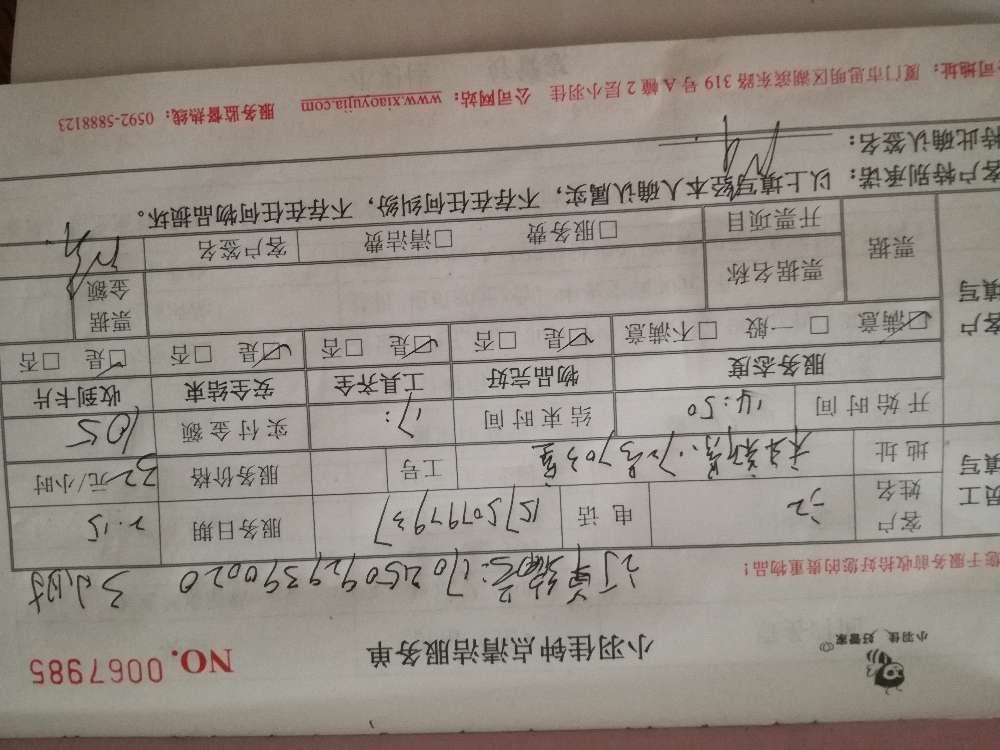 小羽佳 好管家
小羽佳钟点清洁服务单
NO. 0067985
您于服务前收拾好您的贵重物品！
订单编号：170250929390020 3小时
员工填写
客户姓名
电话 15750797937
服务日期 2.15
地址 703室
工号
服务价格 32元/小时
开始时间 14:50
结束时间 17:
实付金额 105
客户填写
服务态度 物品完好 工具齐全 安全结束 收到卡片
☑满意 □一般 □不满意 ☑是 □否 ☑是 □否 ☑是 □否 ☑是 □否
票据 票据名称 票据金额
开票项目 □服务费 □清洁费 客户签名
客户特别承诺：以上填写经本人确认属实，不存在任何纠纷，不存在任何物品损坏。
特此确认签名：
公司地址：厦门市思明区湖滨东路319号A幢2层小羽佳 公司网站：www.xiaoyujia.com 服务监督热线：0592-5888123